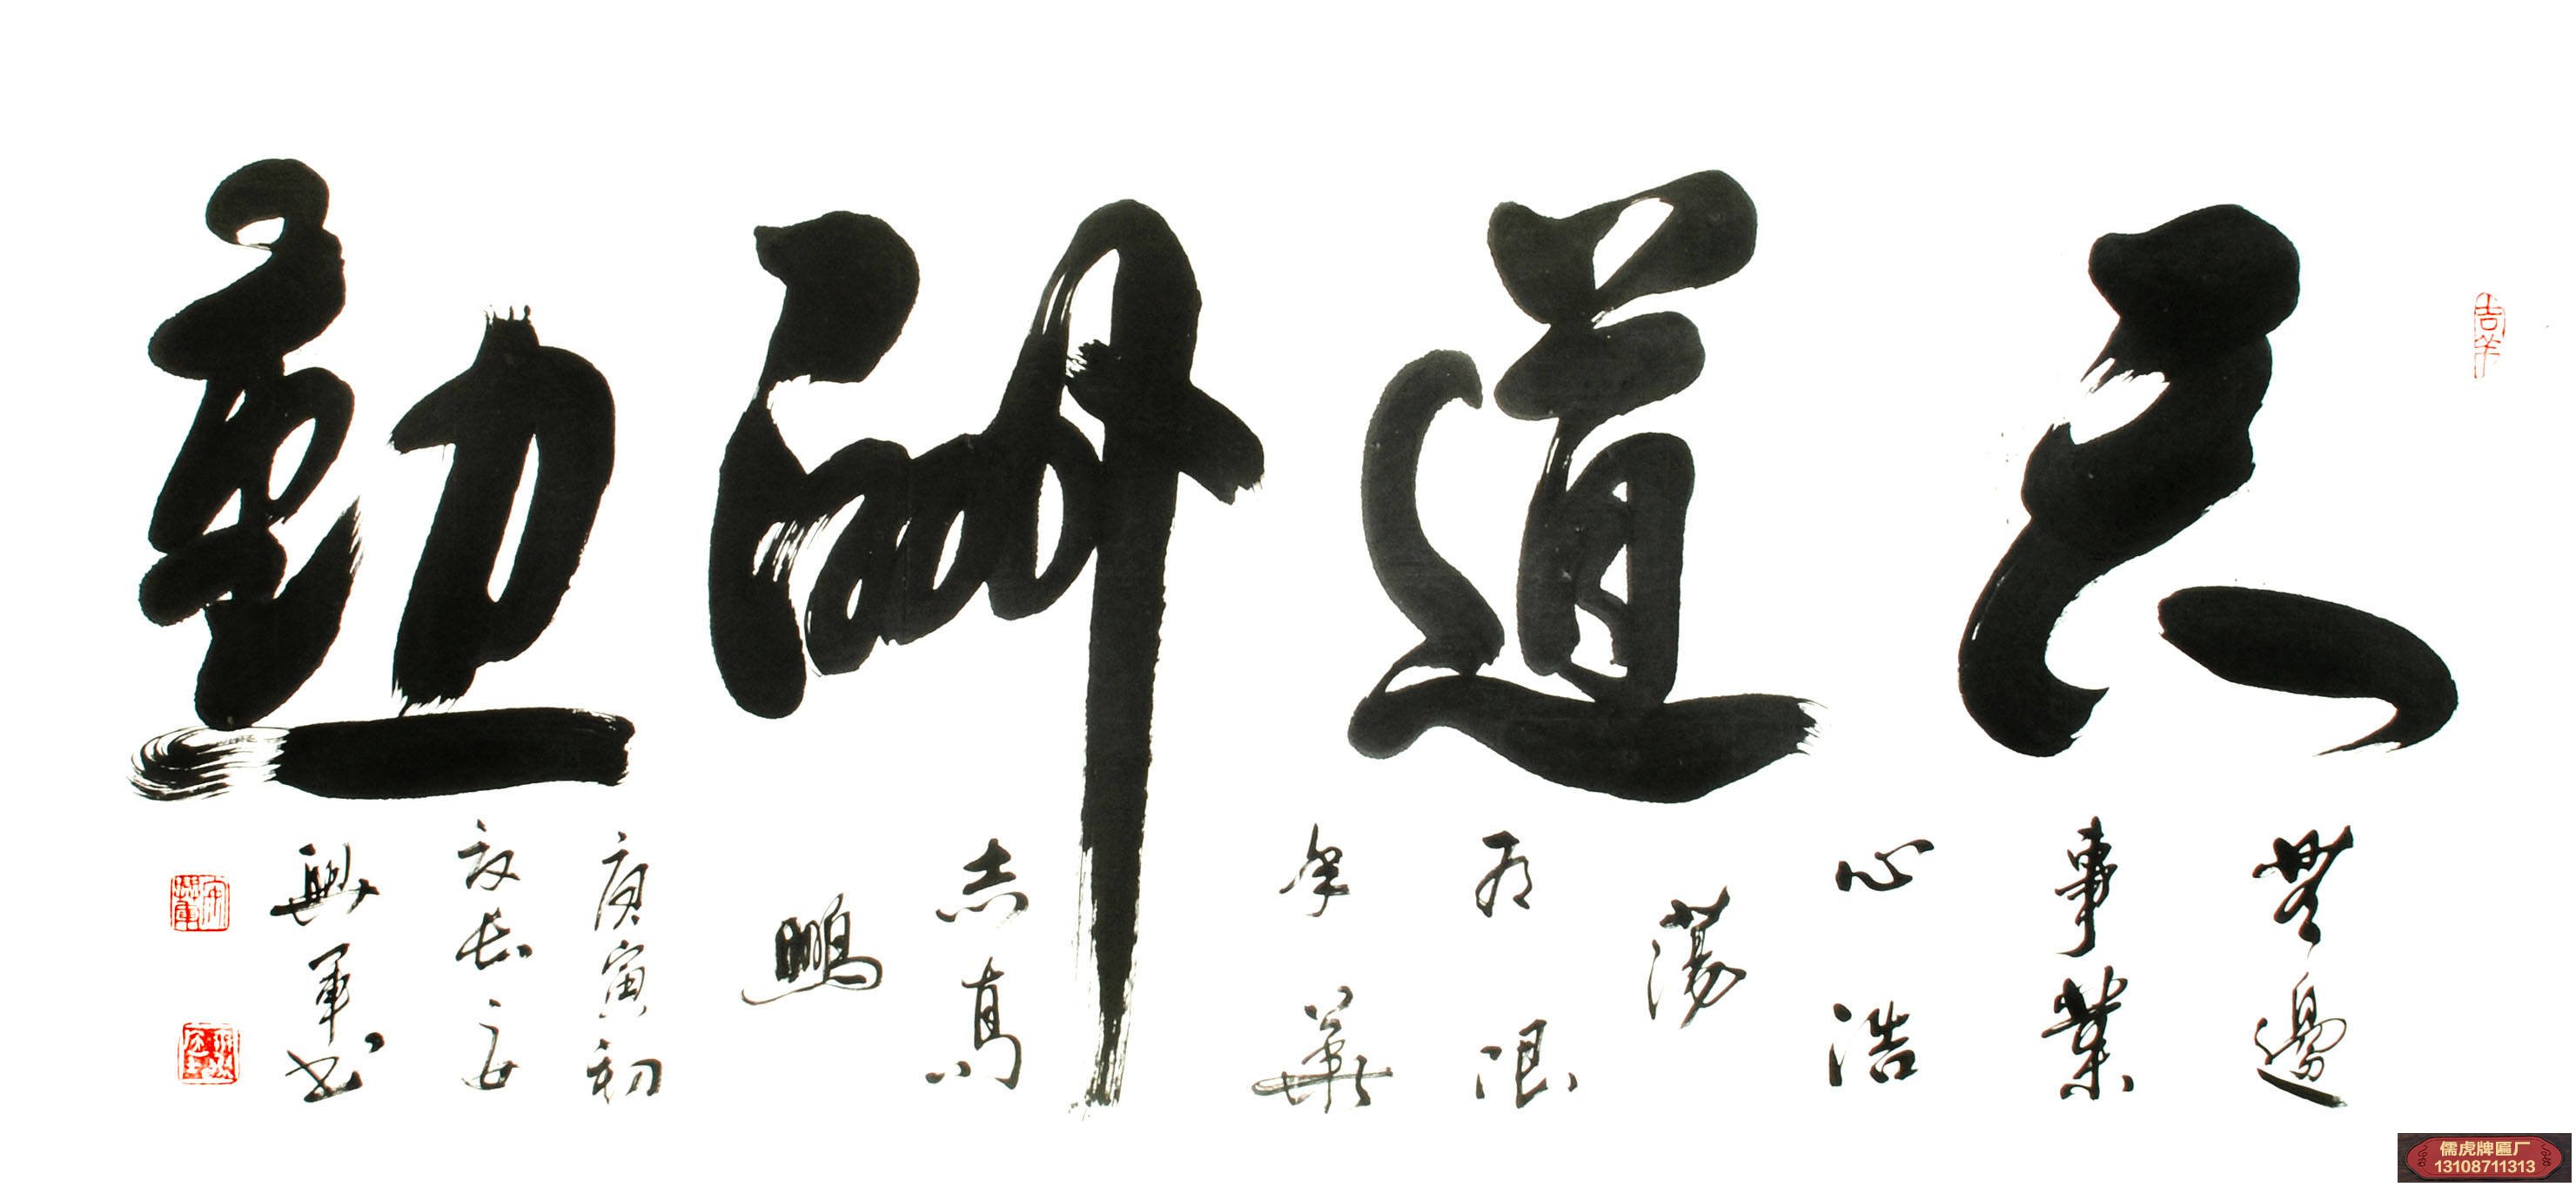 天道酬勤
無邊
事業
心浩
蕩
有限
年華
志高
鵬
庚寅初
夜長安
興軍书
吉羊
儒虎牌匾厂
13108711313